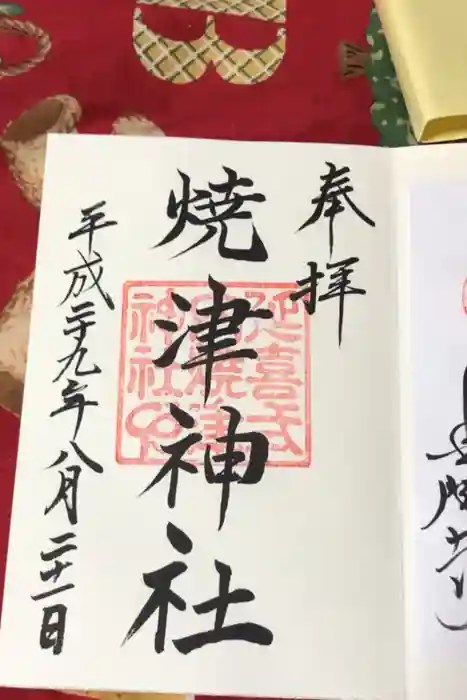 奉拝
焼津神社
平成二十九年八月二十一日
延喜式
内焼津
神社印
B